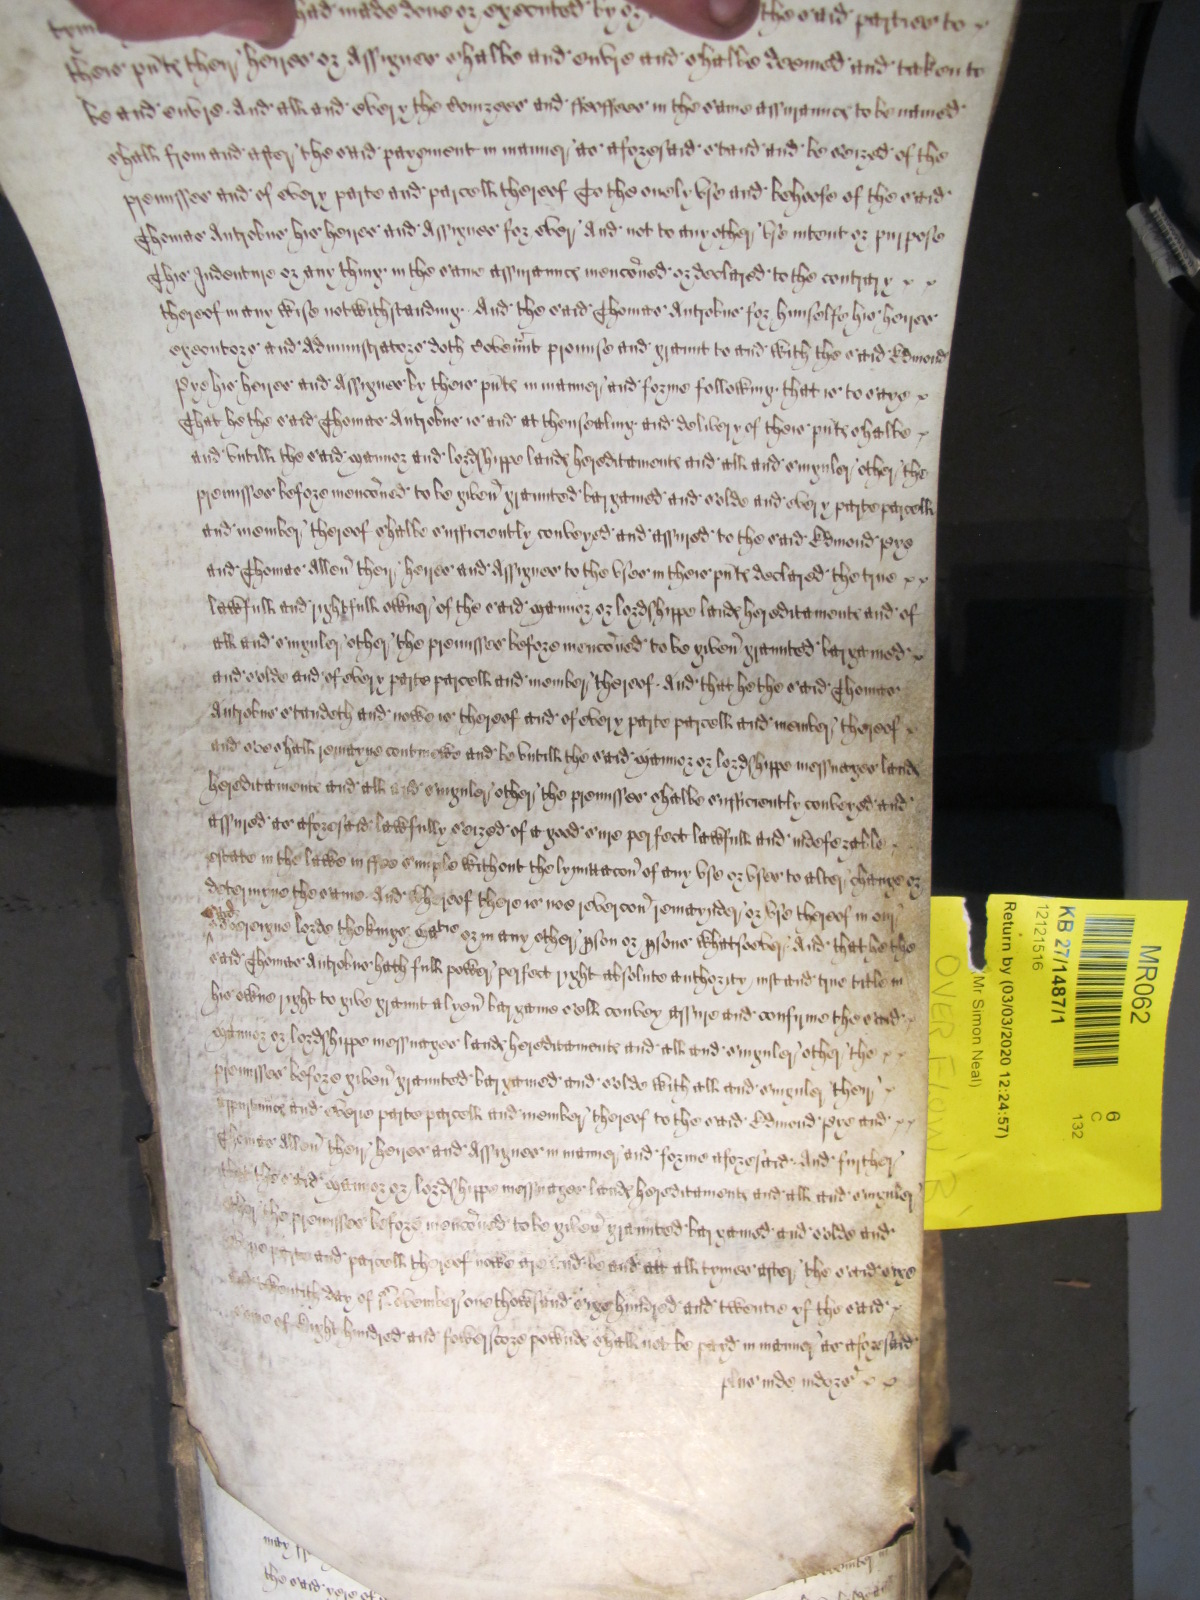 had made done or executed by or the said parties to
these pñte their heires or Assignes shalbe and enure and shalbe deemed and taken to
be and enure. And all and every the Conizees and ffeoffees in the same assurance to be named
shall from and after the said payement in manner as aforesaid stand and be seized of the
premisses and of every parte and parcell thereof To the onely vse and behoofe of the said
Thomas Antrobus his heires and Assignes for ever And not to any other vse intent or purpose
This Indenture or any thing in the same assurance mencõned or declared to the contrary x x
thereof in any wise notwithstanding. And the said Thomas Antrobus for himselfe his heires
executors and Administrators doth covennt promise and graunt to and with the said Edmond
Pye his heires and Assignes by these pñte in manner and forme following that is to saye x
That he the said Thomas Antrobus is and at thensealing and delivery of these pñte shalbe x
and vntill the said Mannor and lordshippe lande hereditamente and all and singuler other the
premisses before mencõned to be given graunted bargained and solde and every parte parcell
and member thereof shalbe sufficiently conveyed and assured to the said Edmond pye
and Thomas Allen their heires and Assignes to the vses in these pñte declared the true x x
lawfull and rightfull owner of the said Mannor or lordshippe lande hereditamente and of
all and singuler other the premisses before mencõned to be given graunted bargained x
and solde and of every parte parcell and member thereof. And that he the said Thomas
Antrobus standeth and nowe is thereof and of every parte parcell and member thereof x
and soe shall remayne contynewe and be vntill the said Mannor or lordshippe messuages lande
hereditamente and all and singuler other the premisses shalbe sufficiently conveyed and
assured as aforesaid lawfully seized of a good sure perfect lawfull and indefezable
estate in the lawe in ffee simple without the lymittacon of any vse or vses to alter change or
determyne the same. And thereof there is noe revercon remaynder or vse thereof in our
said
sovereigne lorde the kinge Matie or in any other pson or psons whatsoever. And that he the
said Thomas Antrobus hath full power perfect right absolute authority iust and true title in
his owne right to give graunt alyen bargaine sell convey assure and confirme the said
Mannor or lordshippe messuages lande hereditamente and all and singuler other the x x
premisses before given graunted bargained and solde with all and singuler their x
appurtnance and everie parte parcell and member thereof to the said Edmond pye and x x
Thomas Allen their heires and Assignes in manner and forme aforesaid. And further
that the said Mannor or lordshippe messuages lande hereditamente and all and singuler
other the premisses before mencõned to be given graunted bargained and solde and
everie parte and parcell thereof nowe are and be and att all tymes after the said sixe
and twentith day of November one thowsand sixe hundred and twentie yf the said x
some of Eight hundred and fowerscore pownde shall not be payd in manner as aforesaid
plus inde indors x x
the said yere of
MR062
6
C
132
KB 27/1487/1
12121516
Return by (03/03/2020 12:24:57)
Mr Simon Neal)
OVER FLOW B